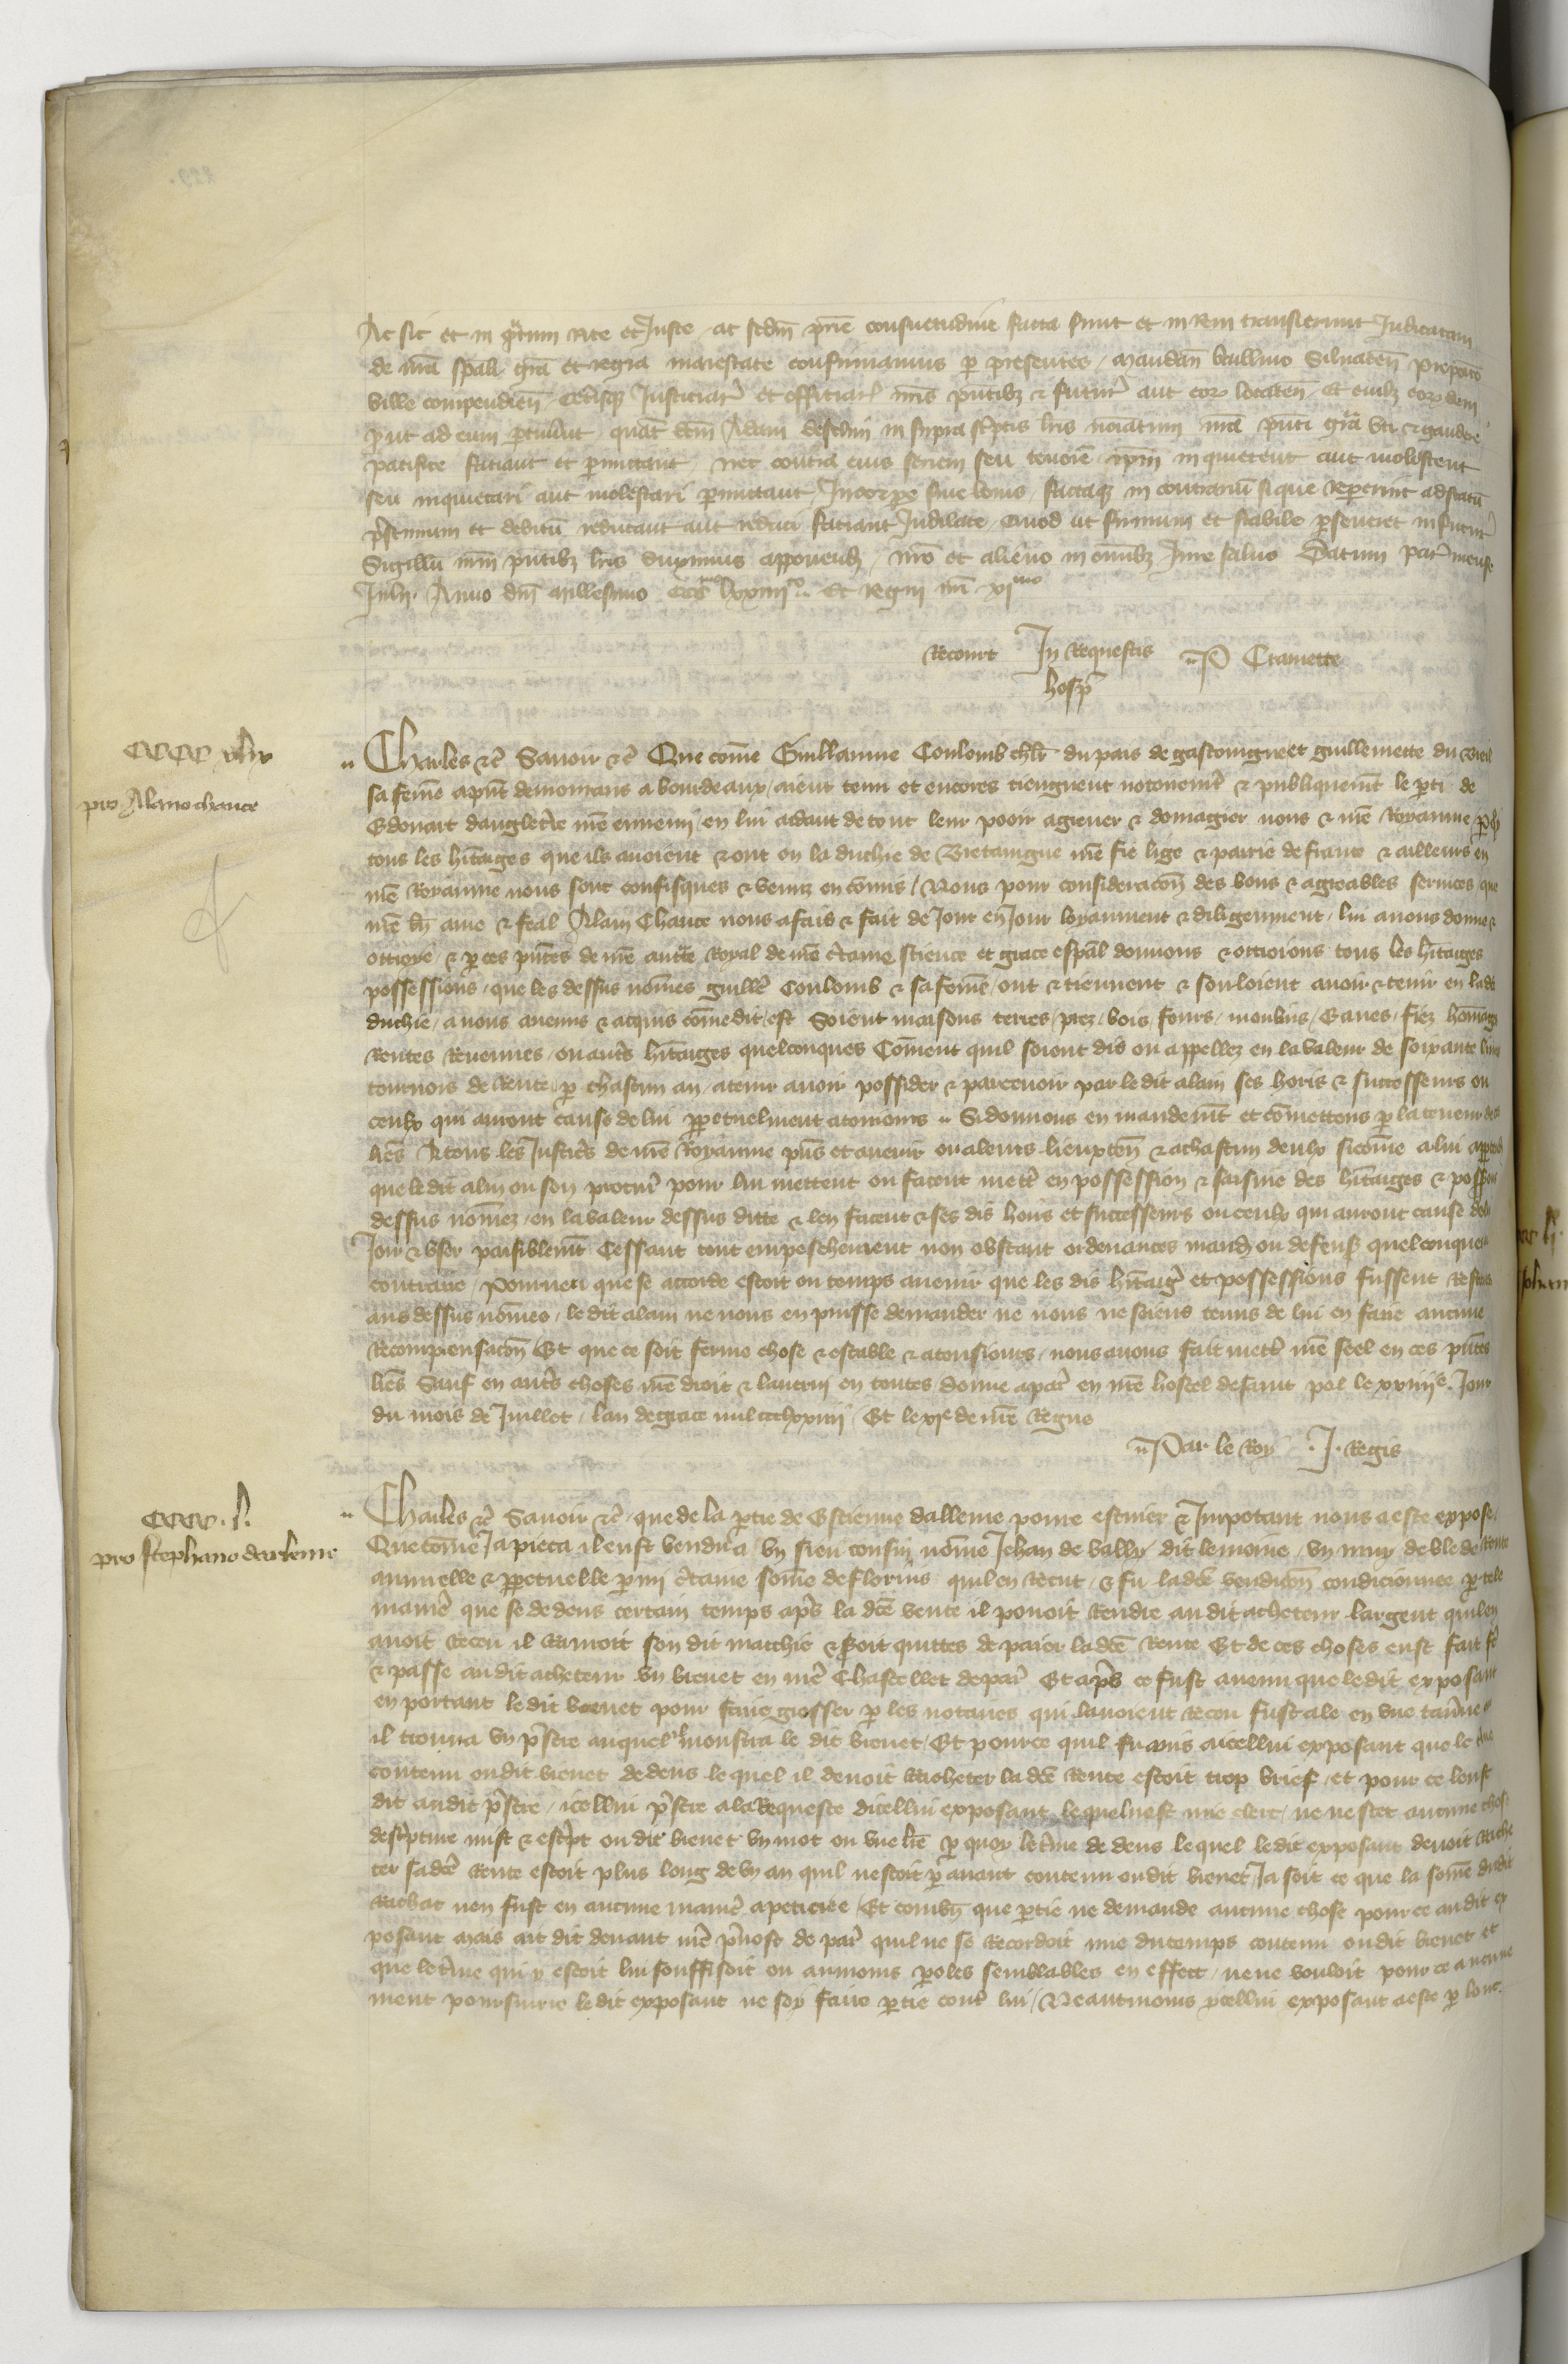 Ac sic et in q̃tum rite et Juste ac scdm̃ prie consuetudine facta sunt et in rem transierunt Judicatam
de nr̃a sp̃ali grã et regia maiestate confirmamus p presentes / Mandam̃ baillivo Silvaten̄ Preposito
ville compendien̄ Ceterisq Justiciar̃ et officiar̃ nr̃is pñtibz & futur̃ aut eorꝝ locaten̄ Et cuilz eorꝝdem
put ad eum ptinuit quat̃ dcm̃ Adam in supra sc̃ptis lr̃is noiatum nr̃a pñti grã uti & gaudere
pacifice faciant et pmittant / nec contra eius seriem seu tenorẽ ipm̃ inquietent aut molestent
seu inquietari aut molestari pmittant / In corpe sive bonis / factaq in contrariũ si que repererint ad statũ
p̃stinum et debitũ reducant aut reduci faciant Indilate / Quod ut firmum et stabile pseveret in futur̃
Sigillũ nr̃m pñtibz lr̃is duximus apponend̃ / nr̃o et alieno in omibz Jure salvo Datum par̃ mense
Julii Anno dñi millesimo ccc lxxiiii to Et Regni nr̃i xi mo
Recourt In Requestis P Cramette
hosp̃
cccc xlix
pro Alano chance
Charles &c̃ Savoir &c̃ Que cõme Guillaume Coulomb chlr̃ du pais de gascoingne et guillemette du Breil
sa feme a pñt demourans a bourdeaux / aient tenu et encores tiengnent notoiremt̃ & publiquemt̃ le pti de
Edouart dangleterre nr̃e ennemi / en lui aidant de tout leur pooir a grever & domagier nous & nr̃e Royaume p quoy
tous les hitaiges que ilz avoient & ont ou la duchie de Bretaingne nr̃e fie lige & pairie de france & ailleurs en
nr̃e Royaume nous sont confisques & venuz en cõmis / Nous pour consideracõn des bons & agreables services que
nr̃e bñ ame & feal Alain Chance nous a fais & fait de Jour en Jour loyaument & diligenment / lui avons donne &
ottroye / & p ces pñtes de nr̃e auctẽ Royal de nr̃e c̃taine science et grace esp̃al donnons & ottroions tous les hitaiges
possessions / que les dessus nõmes guillẽ Coulomb & sa feme / ont & tiennent & souloient avoir & tenir en lad̃c
duchie / a nous avenus & acquis cõme dit est Soient maisons terres / prez / bois / fours / moulins / Eaues / fiez hõmages
Rentes Revenues / ou autr̃s hitaiges quelconques Cõment quil soient dis ou appellez en la valeur de soixante livres
tournois de Rente / p chascun an / a tenir avoir possider & parcevoir par le dit alain ses hoirs & successeurs ou
ceulx qui auront cause de lui ppetuelment a tousiours Si donnons en mandemt̃ et cõmettons p la teneur de ces
lr̃es A tous les Justic̃s de nr̃e Royaume pñs et avenir ou a leurs lieuxten̄ & a chascun deulx sicõme a lui apptendra
que le dit alain ou son procur̃ pour lui mettent ou facent mett̃ en possession & saisine des hitaiges & possessions
dessus nõmez / en la valeur dessus ditte & len facent & ses dis hoirs et successeurs ou ceulx qui auront cause de lui
Joir & user paisiblemt̃ Cessant tout empeschement non obstant ordenances mand̃ ou defenses quelconques
contraire / Pourveu que se accorde estoit ou temps avenir que les dis hitaig̃ et possessions fussent Restitues
aus dessus nõmes / le dit alain ne nous en puisse demander ne nous ne soiens tenus de lui en faire aucune
Recompensacõn / Et que ce soit ferme chose & estable & a tousiours / nous avons fait mett̃ nr̃e seel en ces pñtes
lr̃es Sauf en autr̃s choses nr̃e droit & lautrui en toutes / donne a par̃ en nr̃e hostel de saint pol le xxiiiie Jour
du mois de Juillet / lan de grace mil ccclxxiiii Et le xie de nr̃e Regne
Par le Roy J. Regis
cccc . l.
pro Stephano dearleme
Charles &c̃ Savoir &c̃ / que de la ptie de Estienne dalleme povre escuier & Impotant nous a este expose /
Que cõme Ja pieca il eust vendu a un sien cousin nõme Jehan de bailly dit lemoine / un muy de ble de Rente
annuelle & ppetuelle pmi c̃taine sõme de florins quil en recut / & fu lad̃ce vendicõn condicionnee p tele
manie͂ que se de dens certain temps apr̃s la dc̃e vente il povoit Rendre au dit acheteur largent quil en
avoit Receu il Ravroit son dit marchie & seroit quittes de paier lad̃ce Rente Et de ces choses eust fait fẽ
& passe au dit acheteur un brevet en nr̃e Chastellet de par̃ Et apr̃s ce fust avenu que le dit exposant
en portant le dit brevet pour faire grosser p les notaires qui lavoient Receu fust ale en une taṽne ou
il trouva un p̃stre auquel il monstra le dit brevet / Et pource quil fu avis a icellui exposant que le t̃me
contenu ou dit brevet dedens le quel il devoit Racheter lad̃ce Rente estoit trop brief / et pour ce leust
dit au dit p̃stre / icellui p̃stre a la Requeste dicellui exposant lequel nest mie clerc / ne ne scet aucune chose
desc̃pture mist & esc̃pt ou dit brevet un mot ou une lr̃e p quoy le t̃me dedens lequel ledit exposant devoit Rache
ter lad̃ce Rente estoit plus long de un an quil nestoit p avant contenu ou dit brevet / Ja soit ce que la sõme dudit
Rachat nen fust en aucune manie͂ apeticiee / Et combn̄ que ptie ne demande aucune chose pour ce au dit ex
posant mais ait dit devant nr̃e p̃vost de par̃ quil ne se Recordoit mie du temps contenu ou dit brevet et
que le t̃me qui y estoit lui souffisoit ou aumoins poles semblables en effect / ne ne vouloit pour ce aucune
ment poursuivre le dit exposant ne soy faire ptie cont̃ lui / Neantmoins ycellui exposant a este p lonc